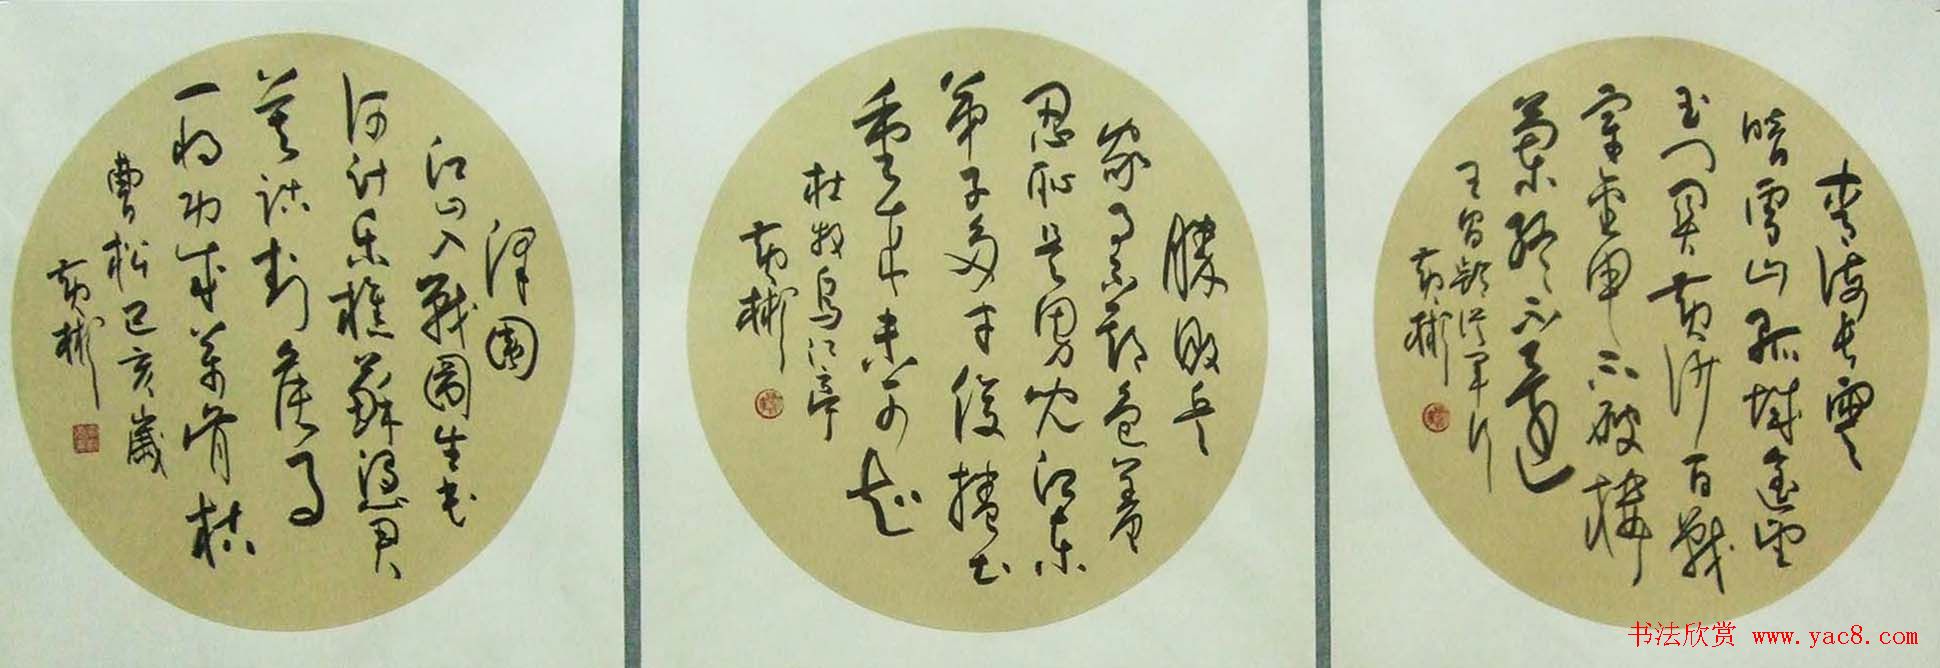 青海長雲
暗雪山孤城遥望
玉门関黄沙百戰
穿金甲不破樓
蘭終不還
王昌齡從軍行
黄彬
勝敗兵
家事不期包羞
忍耻是男児江东
弟子多才俊捲土
重来未可知
杜牧烏江亭
黄彬
澤國
江山入戰圖生民
何计乐樵蘇憑君
莫话封侯事
一将功成萬骨枯
曹松己亥歲
黄彬
书法欣赏 www.yac8.com